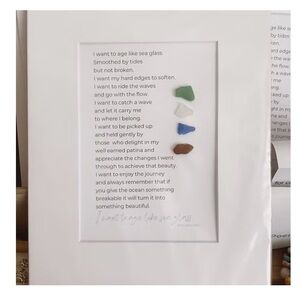 I want to age like sea glass.
Smoothed by tides
but not broken.
I want my hard edges to soften.
I want to ride the waves
and go with the flow.
I want to catch a wave
and let it carry me
to where I belong.
I want to be picked up
and held gently by
those who delight in my
well earned patina and
appreciate the changes I went
through to achieve that beauty.
I want to enjoy the journey
and always remember that if
you give the ocean something
breakable it will turn it into
something beautiful.
I want to age like sea glass